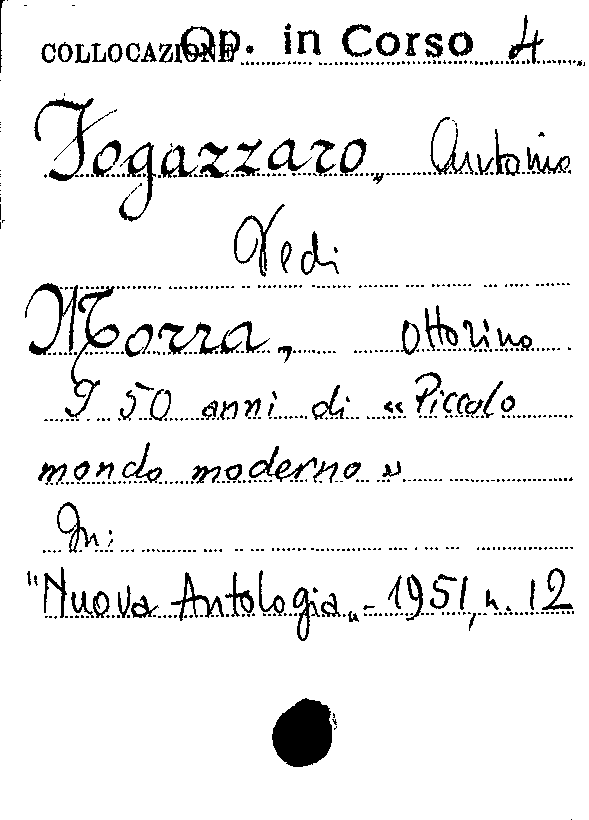 COLLOCAZIONE Op. in Corso 4
Fogazzaro, Antonio
Vedi
Morra, Ottorino
I 50 anni di «Piccolo
mondo moderno»
In:
"Nuova Antologia„ - 1951, n. 12